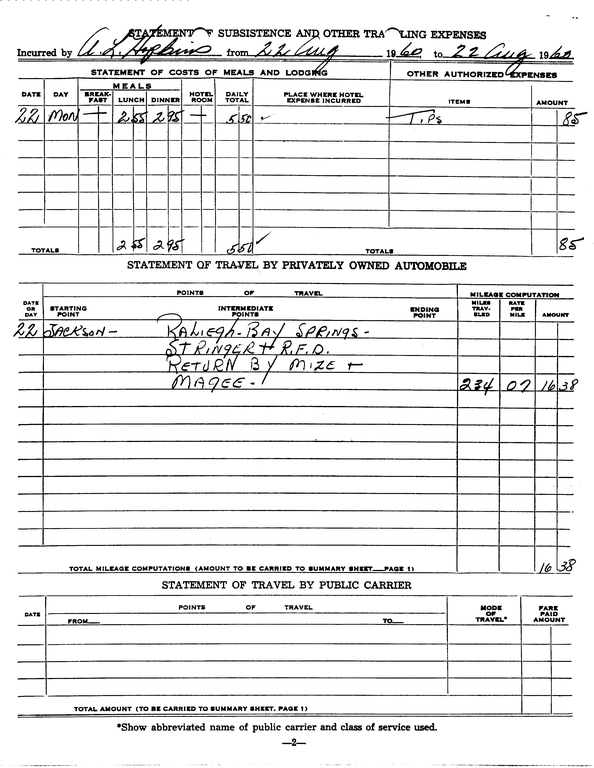 STATEMENT OF SUBSISTENCE AND OTHER TRAVELING EXPENSES
Incurred by A. L. Hopkins from 22 Aug 1960, to 22 Aug 1960
STATEMENT OF COSTS OF MEALS AND LODGING OTHER AUTHORIZED EXPENSES
DATE DAY MEALS BREAK-FAST LUNCH DINNER HOTEL ROOM DAILY TOTAL PLACE WHERE HOTEL EXPENSE INCURRED ITEMS AMOUNT
22 MON — 2 55 2 95 — 5 50 ✓ TiPs 85
TOTALS 2 55 2 95 5 50 ✓ TOTALS 85
STATEMENT OF TRAVEL BY PRIVATELY OWNED AUTOMOBILE
POINTS OF TRAVEL MILEAGE COMPUTATION
DATE OR DAY STARTING POINT INTERMEDIATE POINTS ENDING POINT MILES TRAV-ELED RATE PER MILE AMOUNT
22 JACKSON- RALIEGH-BAY SPRINGS-
STRINGER + R.F.D.
RETURN BY MIZE +
MAGEE- 234 07 16 38
TOTAL MILEAGE COMPUTATIONS (AMOUNT TO BE CARRIED TO SUMMARY SHEET—PAGE 1) 16 38
STATEMENT OF TRAVEL BY PUBLIC CARRIER
DATE POINTS OF TRAVEL MODE OF TRAVEL* FARE PAID AMOUNT
FROM— TO—
TOTAL AMOUNT (TO BE CARRIED TO SUMMARY SHEET, PAGE 1)
*Show abbreviated name of public carrier and class of service used.
—2—